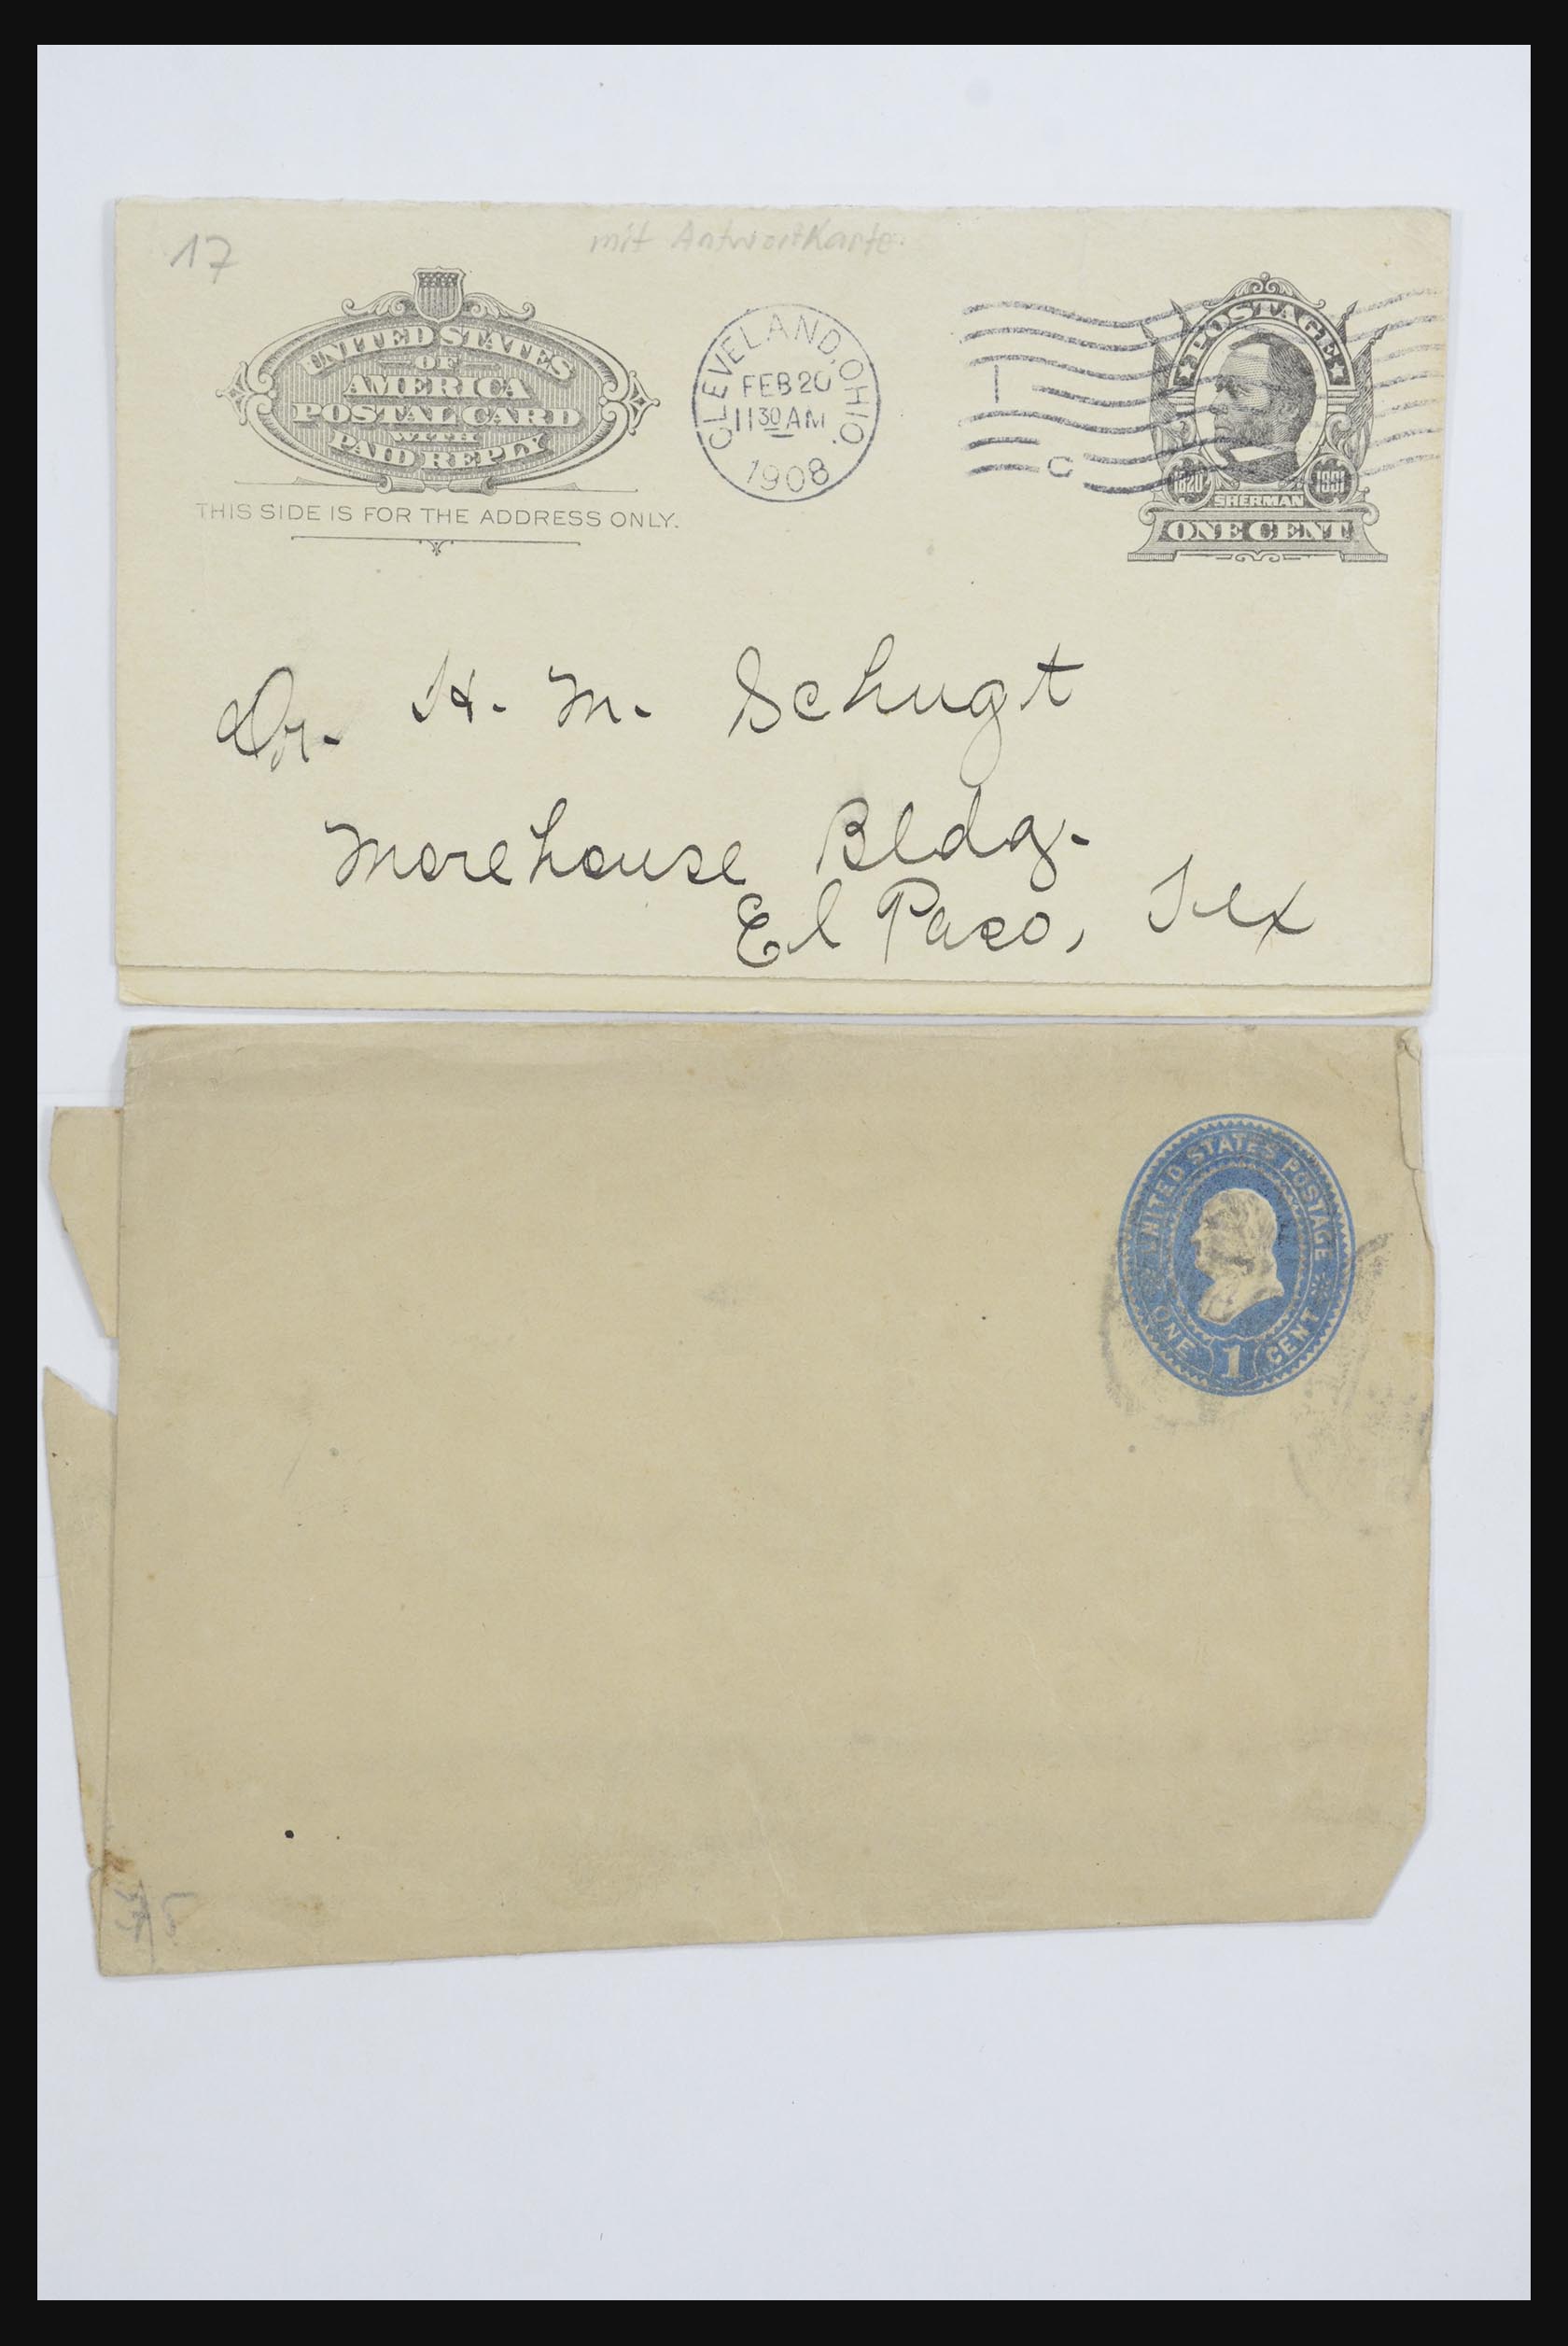 17
mit Antwortkarte
UNITED STATES
OF
AMERICA
POSTAL CARD
WITH
PAID REPLY
THIS SIDE IS FOR THE ADDRESS ONLY.
CLEVELAND, OHIO.
FEB 20
11 30 AM
1908
1
C
POSTAGE
1820 1891
SHERMAN
ONE CENT
Dr. H. M. Schugt
Morehouse Bldg.
El Paso, Tex
UNITED STATES POSTAGE
ONE 1 CENT